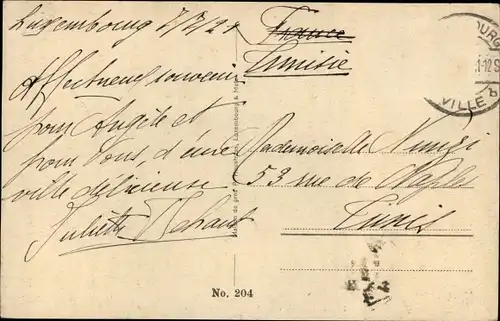 Luxembourg 7/7/27
Affectueux souvenir
pour Angèle et
pour vous, d'une
ville délicieuse
Juliette
France
Tunisie
Mademoiselle
53 rue de Naples
Tunis
VILLE
No. 204